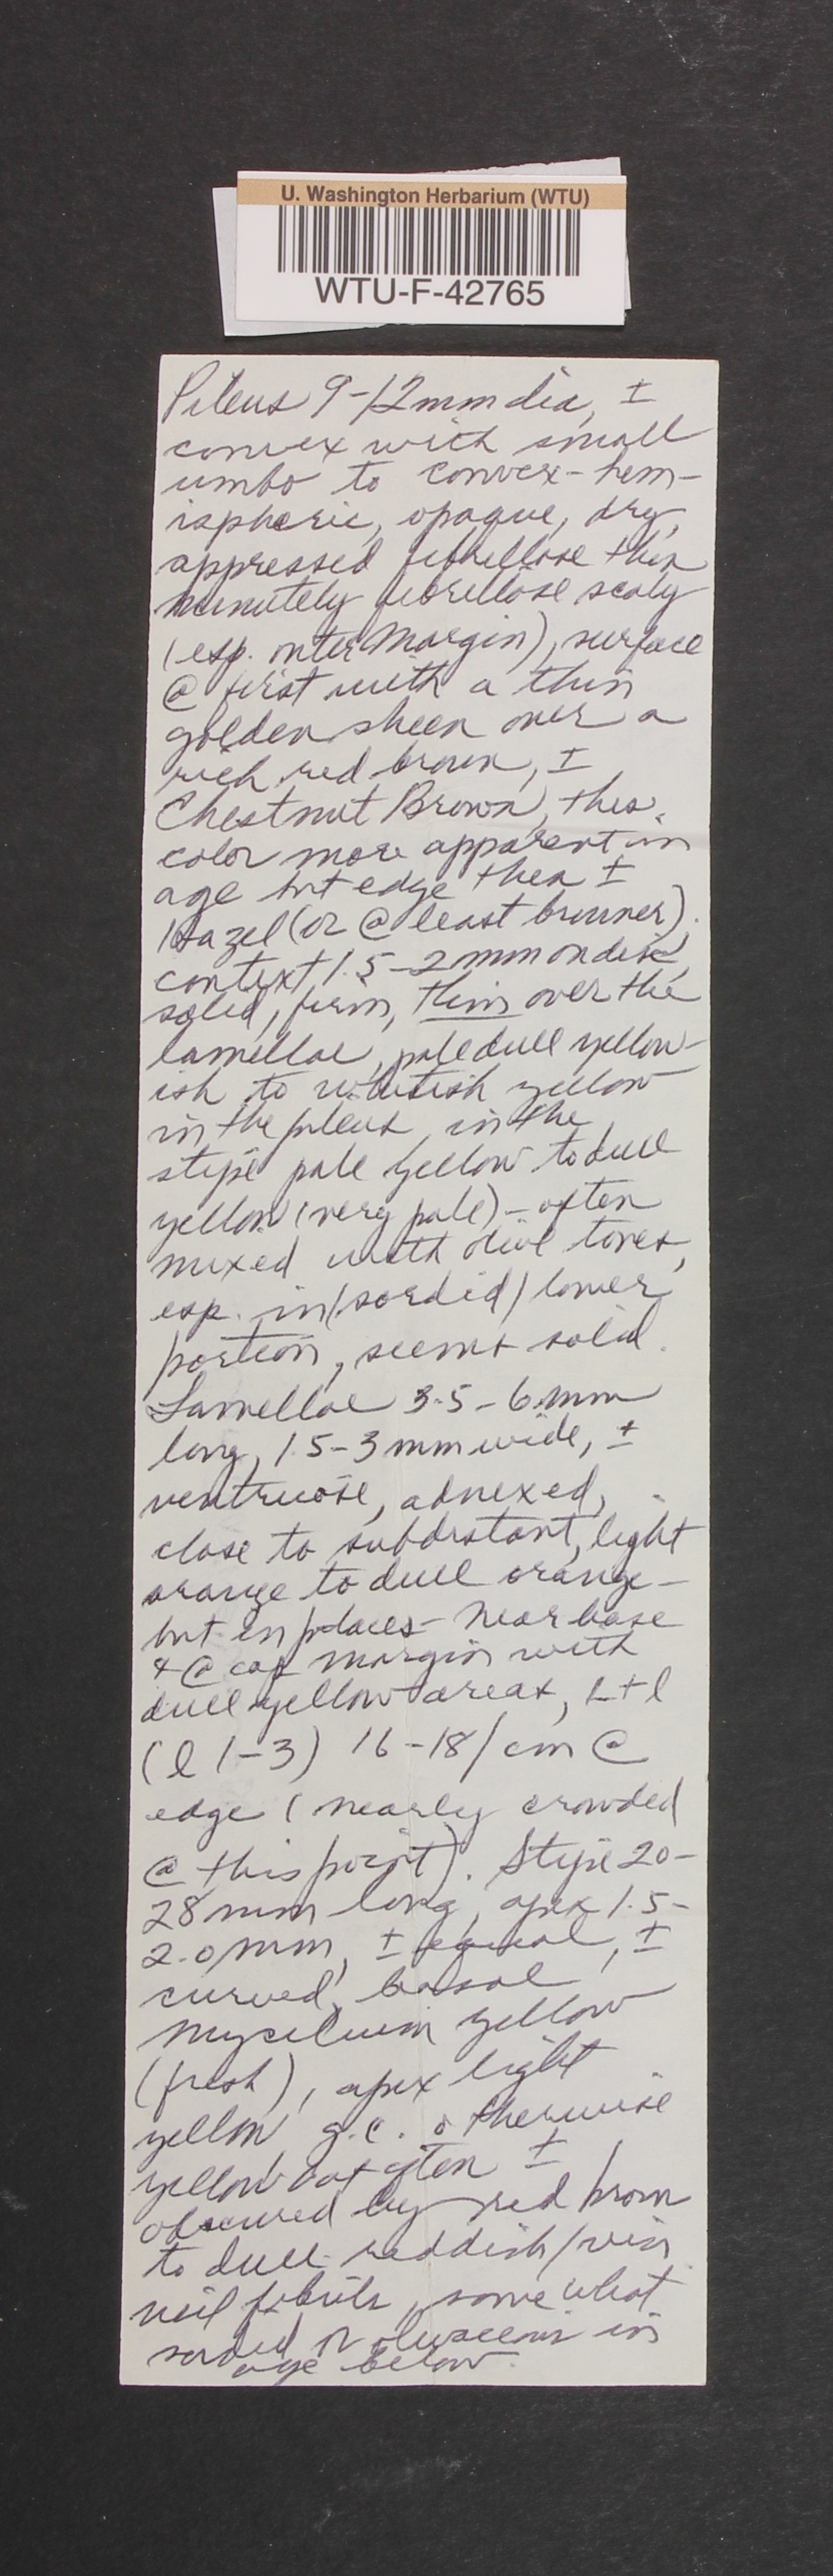 U. Washington Herbarium (WTU)
WTU-F-42765
Pileus 9-12mm dia, ±
convex with small
umbo to convex-hem-
ispheric, opaque, dry,
appressed fibrillose then
minutely fibrillose scaly
(esp. outer margin), surface
@ first with a thin
golden sheen over a
rich red brown, ±
Chestnut Brown, this
color more apparent in
age but edge then ±
Hazel (or @ least browner).
context 1.5-2mm on disk,
solid, firm, thin over the
lamellae, pale dull yellow-
ish to whitish yellow
in the pileus, in the
stipe pale yellow to dull
yellow (very pale) - often
mixed with olive tones,
esp. in (sordid) lower
portion, seems solid.
Lamellae 3.5-6mm
long, 1.5-3mm wide, ±
ventricose, adnexed,
close to subdistant, light
orange to dull orange -
but in places - near base
& @ cap margin with
dull yellow areas, L+l
(l 1-3) 16-18/cm @
edge (nearly crowded
@ this point). Stipe 20-
28mm long, apex 1.5-
2.0mm, ± equal, ±
curved, basal
mycelium yellow
(fresh), apex light
yellow g.c. otherwise
yellow but often ±
obscured by red brown
to dull reddish/vin
veil fibrils, somewhat
sordid or olivaceous in
age below.